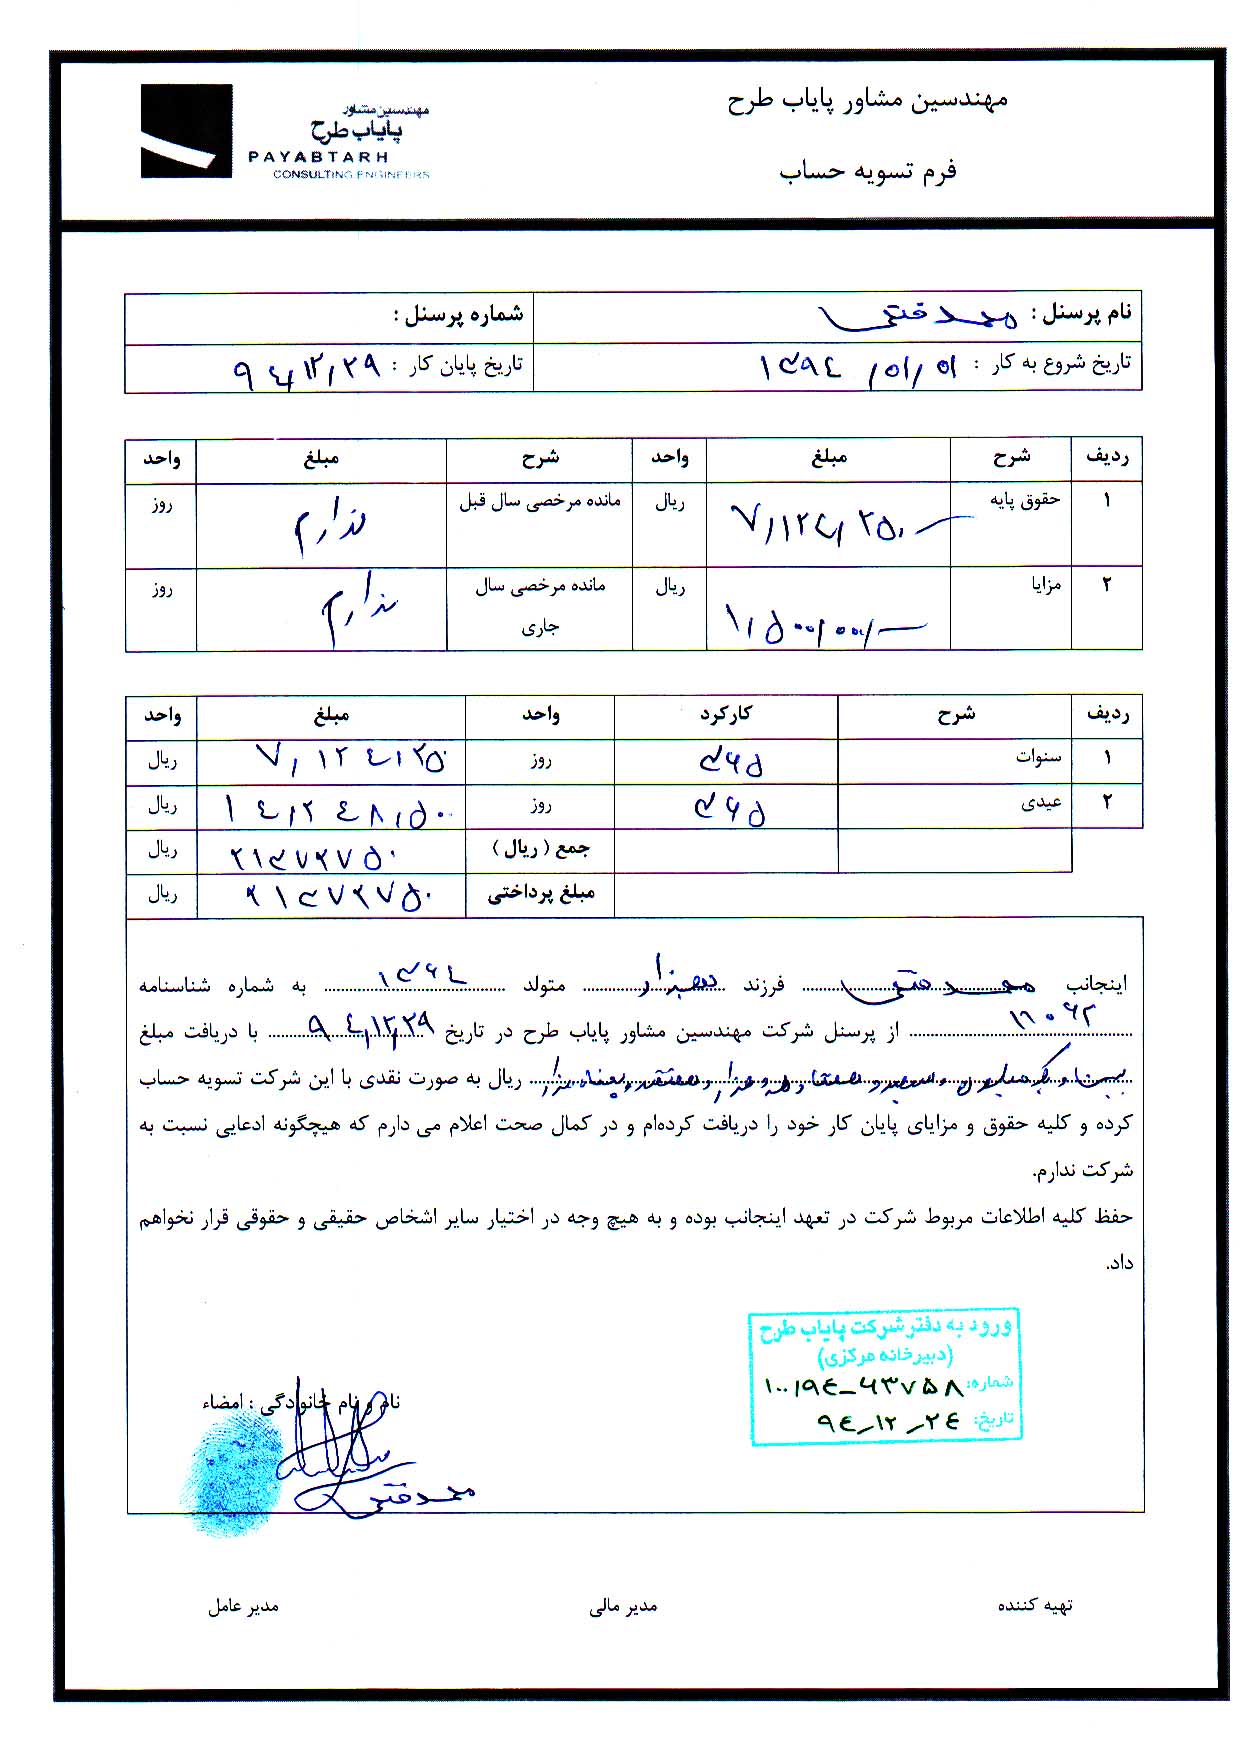 مهندسین مشاور پایاب طرح
فرم تسویه حساب
مهندسین مشاور
پایاب طرح
PAYABTARH
CONSULTING ENGINEERS
نام پرسنل : محمد فتحی شماره پرسنل :
تاریخ شروع به کار : ۱۳۹۴/۰۱/۰۱ تاریخ پایان کار : ۹۴/۱۲/۲۹
ردیف شرح مبلغ واحد شرح مبلغ واحد
۱ حقوق پایه ۷,۱۲۴,۲۵۰ ریال مانده مرخصی سال قبل ندارم روز
۲ مزایا ۱,۵۰۰,۰۰۰ ریال مانده مرخصی سال جاری ندارم روز
ردیف شرح کارکرد واحد مبلغ واحد
۱ سنوات ۳۶۵ روز ۷,۱۲۴,۲۵۰ ریال
۲ عیدی ۳۶۵ روز ۱۴,۲۴۸,۵۰۰ ریال
جمع ( ریال ) ۲۱۳۷۲۷۵۰ ریال
مبلغ پرداختی ۲۱۳۷۲۷۵۰ ریال
اینجانب محمد فتحی فرزند متولد ۱۳۶۴ به شماره شناسنامه
۱۱۰۶۲ از پرسنل شرکت مهندسین مشاور پایاب طرح در تاریخ ۹۴,۱۲,۲۹ با دریافت مبلغ
بیست و یک میلیون و سیصد و هفتاد و دو هزار و هفتصد و پنجاه ریال به صورت نقدی با این شرکت تسویه حساب
کرده و کلیه حقوق و مزایای پایان کار خود را دریافت کرده‌ام و در کمال صحت اعلام می دارم که هیچگونه ادعایی نسبت به
شرکت ندارم.
حفظ کلیه اطلاعات مربوط شرکت در تعهد اینجانب بوده و به هیچ وجه در اختیار سایر اشخاص حقیقی و حقوقی قرار نخواهم
داد.
ورود به دفتر شرکت پایاب طرح
(دبیرخانه مرکزی)
شماره: ۱۰۰/۹۴-۶۳۷۵۸
تاریخ: ۹۴-۱۲-۲۴
نام و نام خانوادگی : امضاء
محمد فتحی
تهیه کننده مدیر مالی مدیر عامل